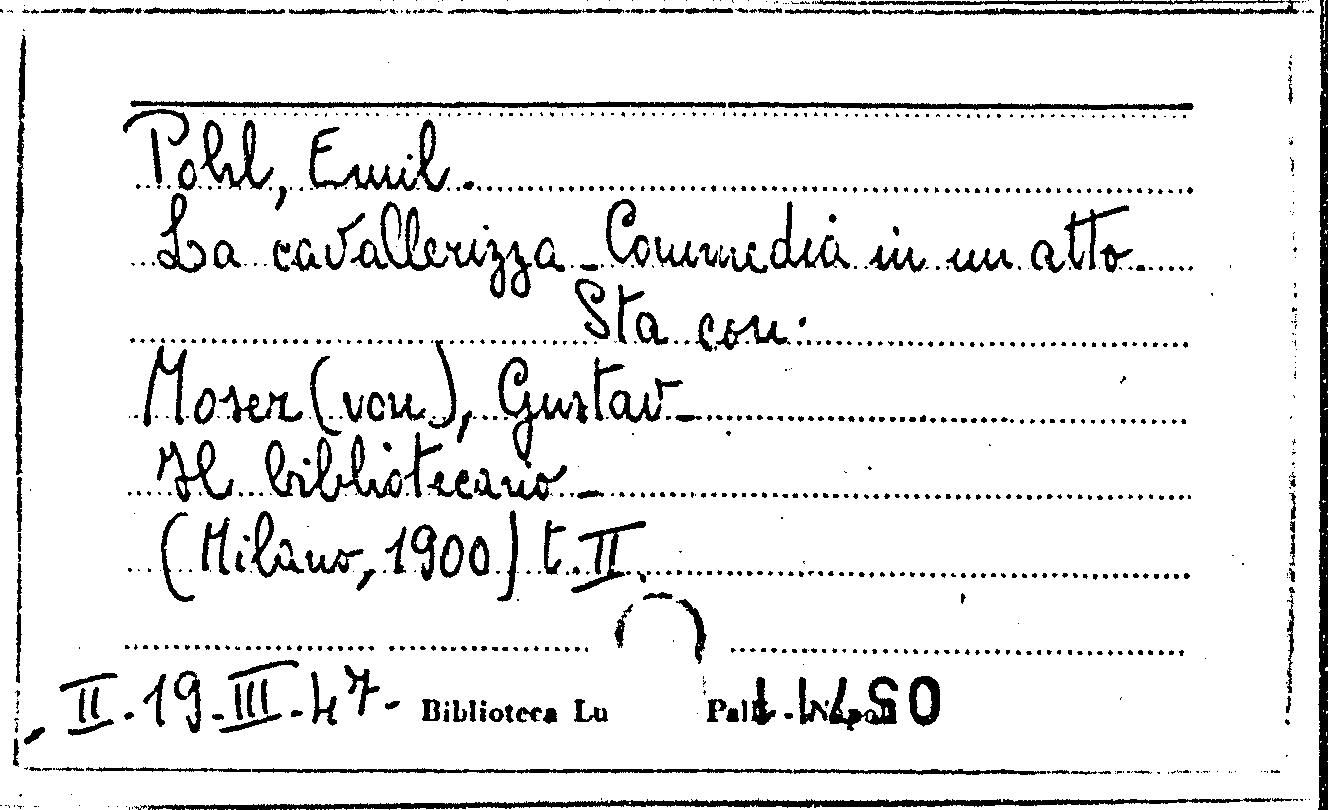 Pohl, Emil.
La cavallerizza - Commedia in un atto.
Sta con:
Moser (von), Gustav -
Il bibliotecario -
(Milano, 1900) t. II.
II. 19. III. 47 - Biblioteca Lu